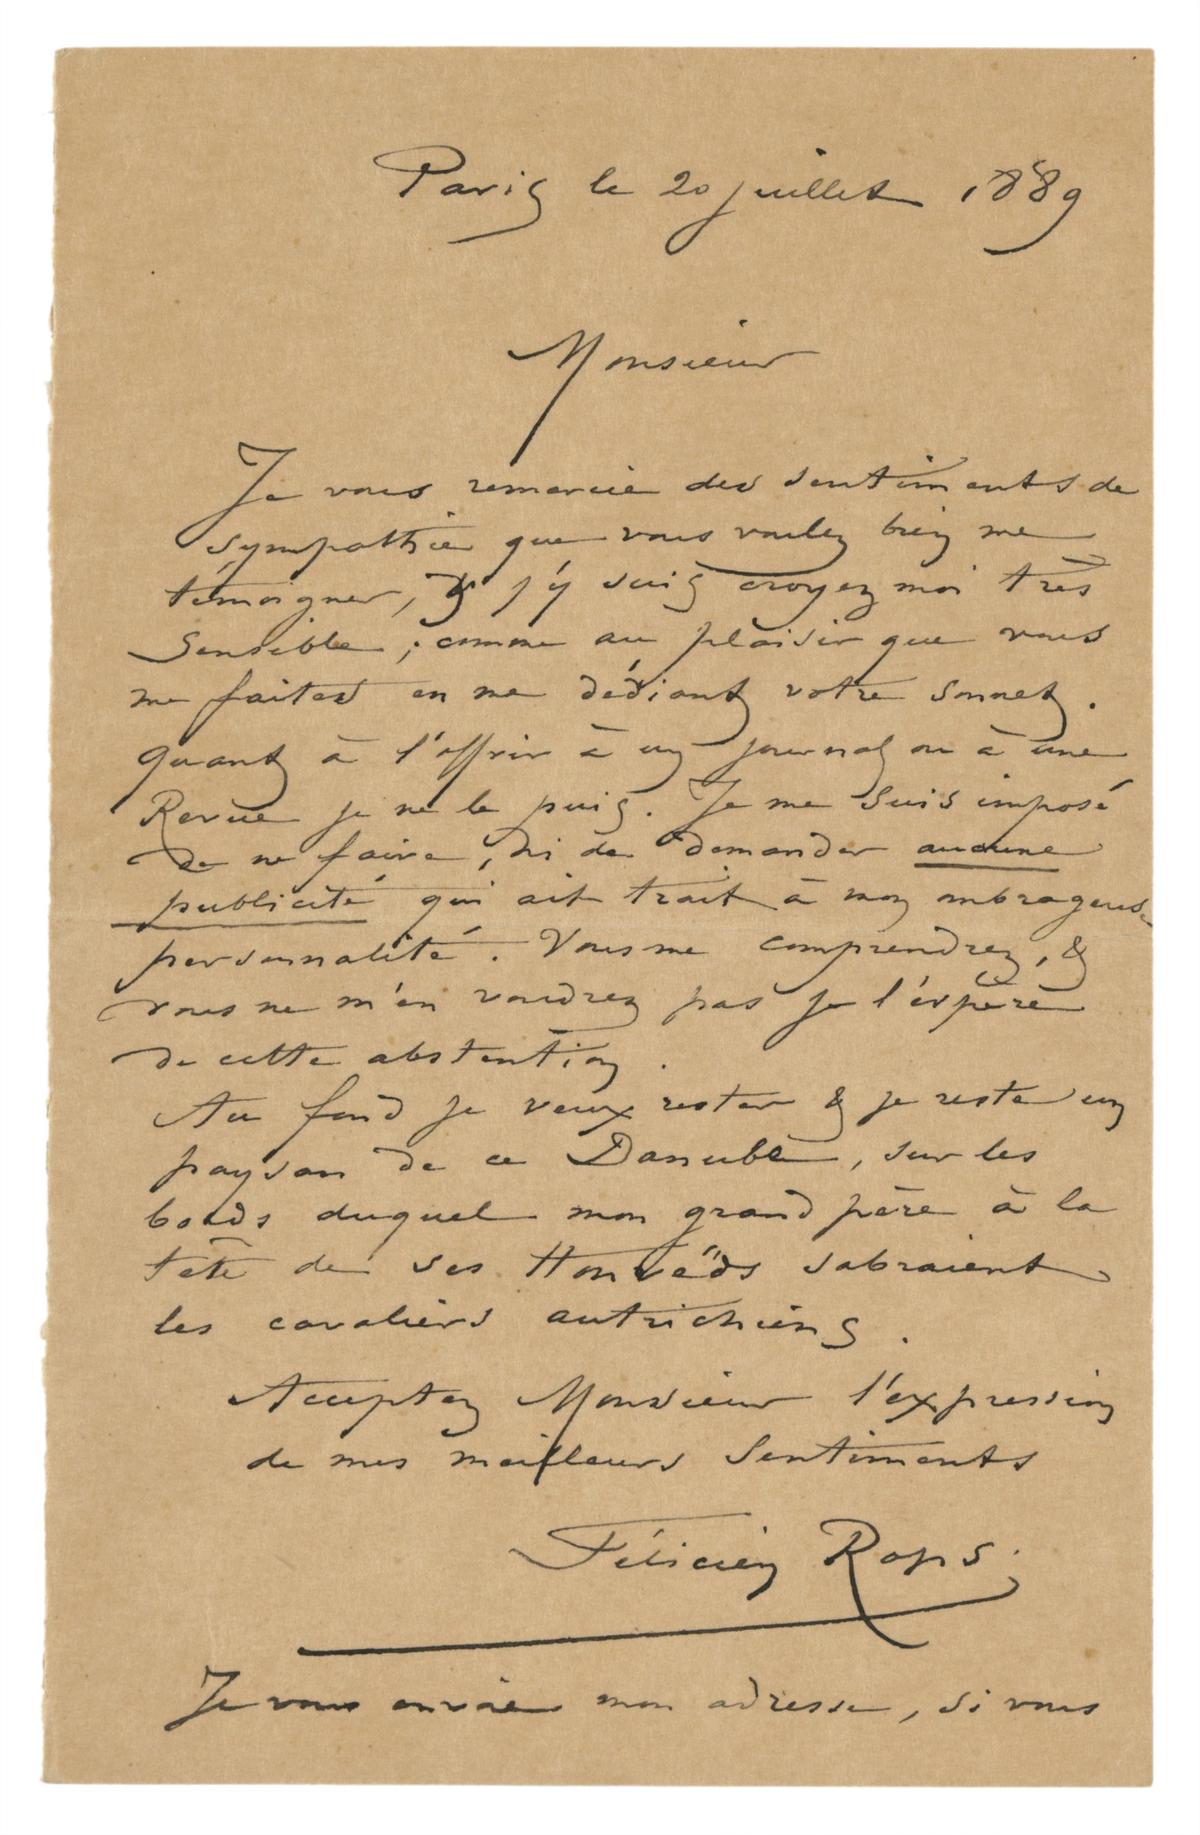 Paris le 20 juillet 1889
Monsieur
Je vous remercie des sentiments de
sympathie que vous voulez bien me
témoigner, & j'y suis croyez moi très
sensible ; comme au plaisir que vous
me faites en me dédiant votre sonnet.
Quant à l'offrir à un journal ou à une
Revue je ne le puis. Je me suis imposé
de ne faire, ni de demander aucune
publicité qui ait trait à mon ombrageuse
personnalité. Vous me comprendrez, &
vous ne m'en voudrez pas je l'éspère
de cette abstention.
Au fond je veux rester & je reste un
paysan de ce Danube, sur les
bords duquel mon grand père à la
tête de ses Honvëds sabraient
les cavaliers autrichiens.
Acceptez Monsieur l'expression
de mes meilleurs sentiments
Félicien Rops.
Je vous envoie mon adresse, si vous